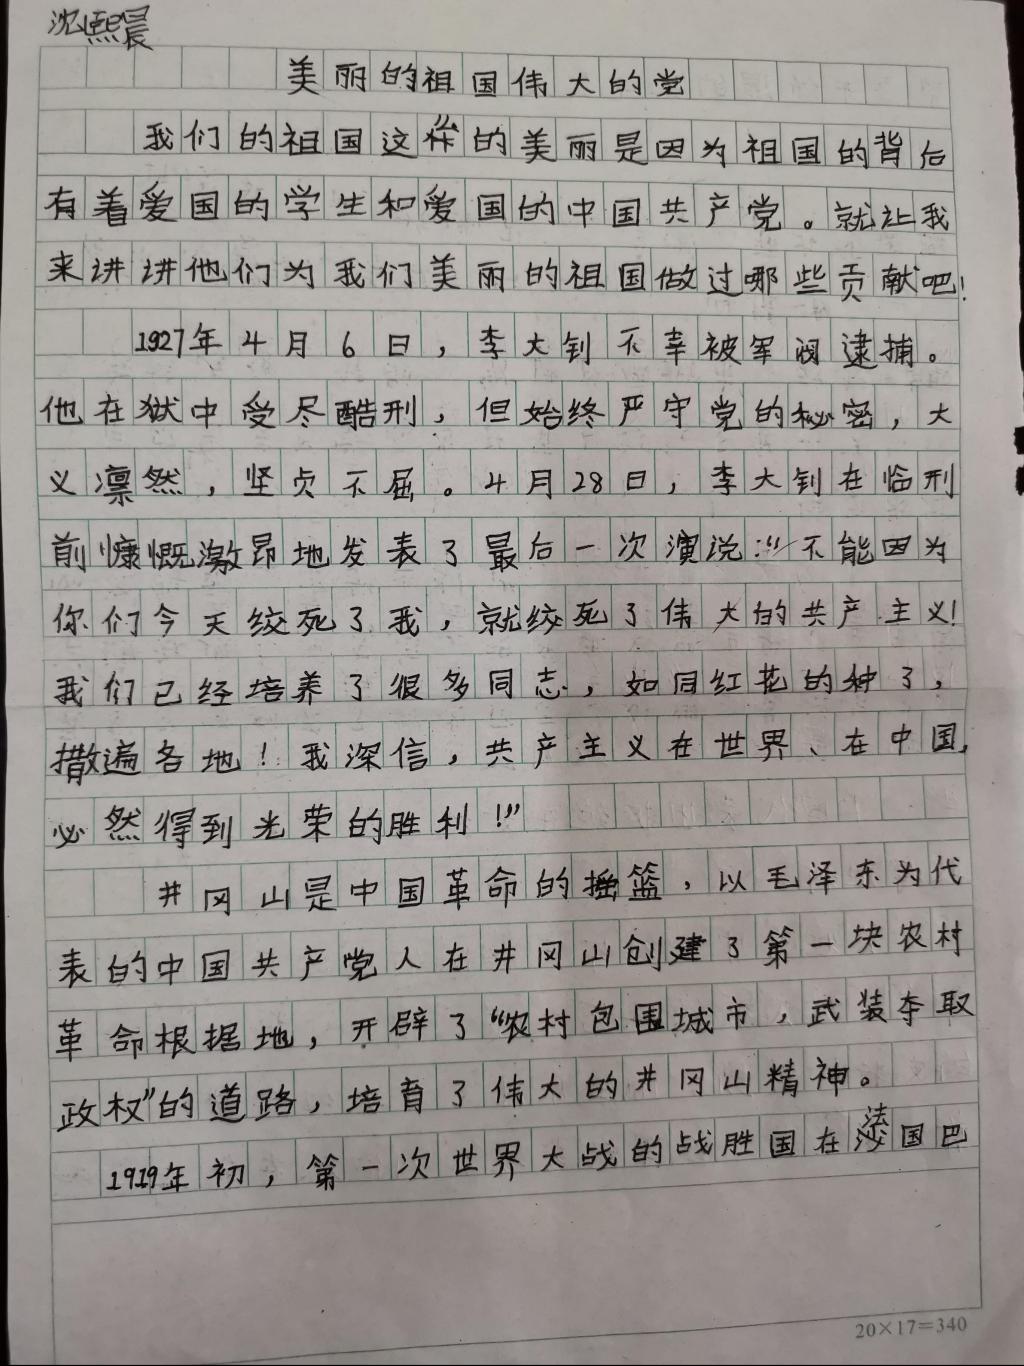 沈熙晨
美丽的祖国伟大的党
我们的祖国这样的美丽是因为祖国的背后
有着爱国的学生和爱国的中国共产党。就让我
来讲讲他们为我们美丽的祖国做过哪些贡献吧!
1927年4月6日,李大钊不幸被军阀逮捕。
他在狱中受尽酷刑,但始终严守党的秘密,大
义凛然,坚贞不屈。4月28日,李大钊在临刑
前慷慨激昂地发表了最后一次演说:“不能因为
你们今天绞死了我,就绞死了伟大的共产主义!
我们已经培养了很多同志,如同红花的种了,
撒遍各地!我深信,共产主义在世界、在中国,
必然得到光荣的胜利!”
井冈山是中国革命的摇篮,以毛泽东为代
表的中国共产党人在井冈山创建了第一块农村
革命根据地,开辟了“农村包围城市,武装夺取
政权”的道路,培育了伟大的井冈山精神。
1919年初,第一次世界大战的战胜国在法国巴
20×17=340